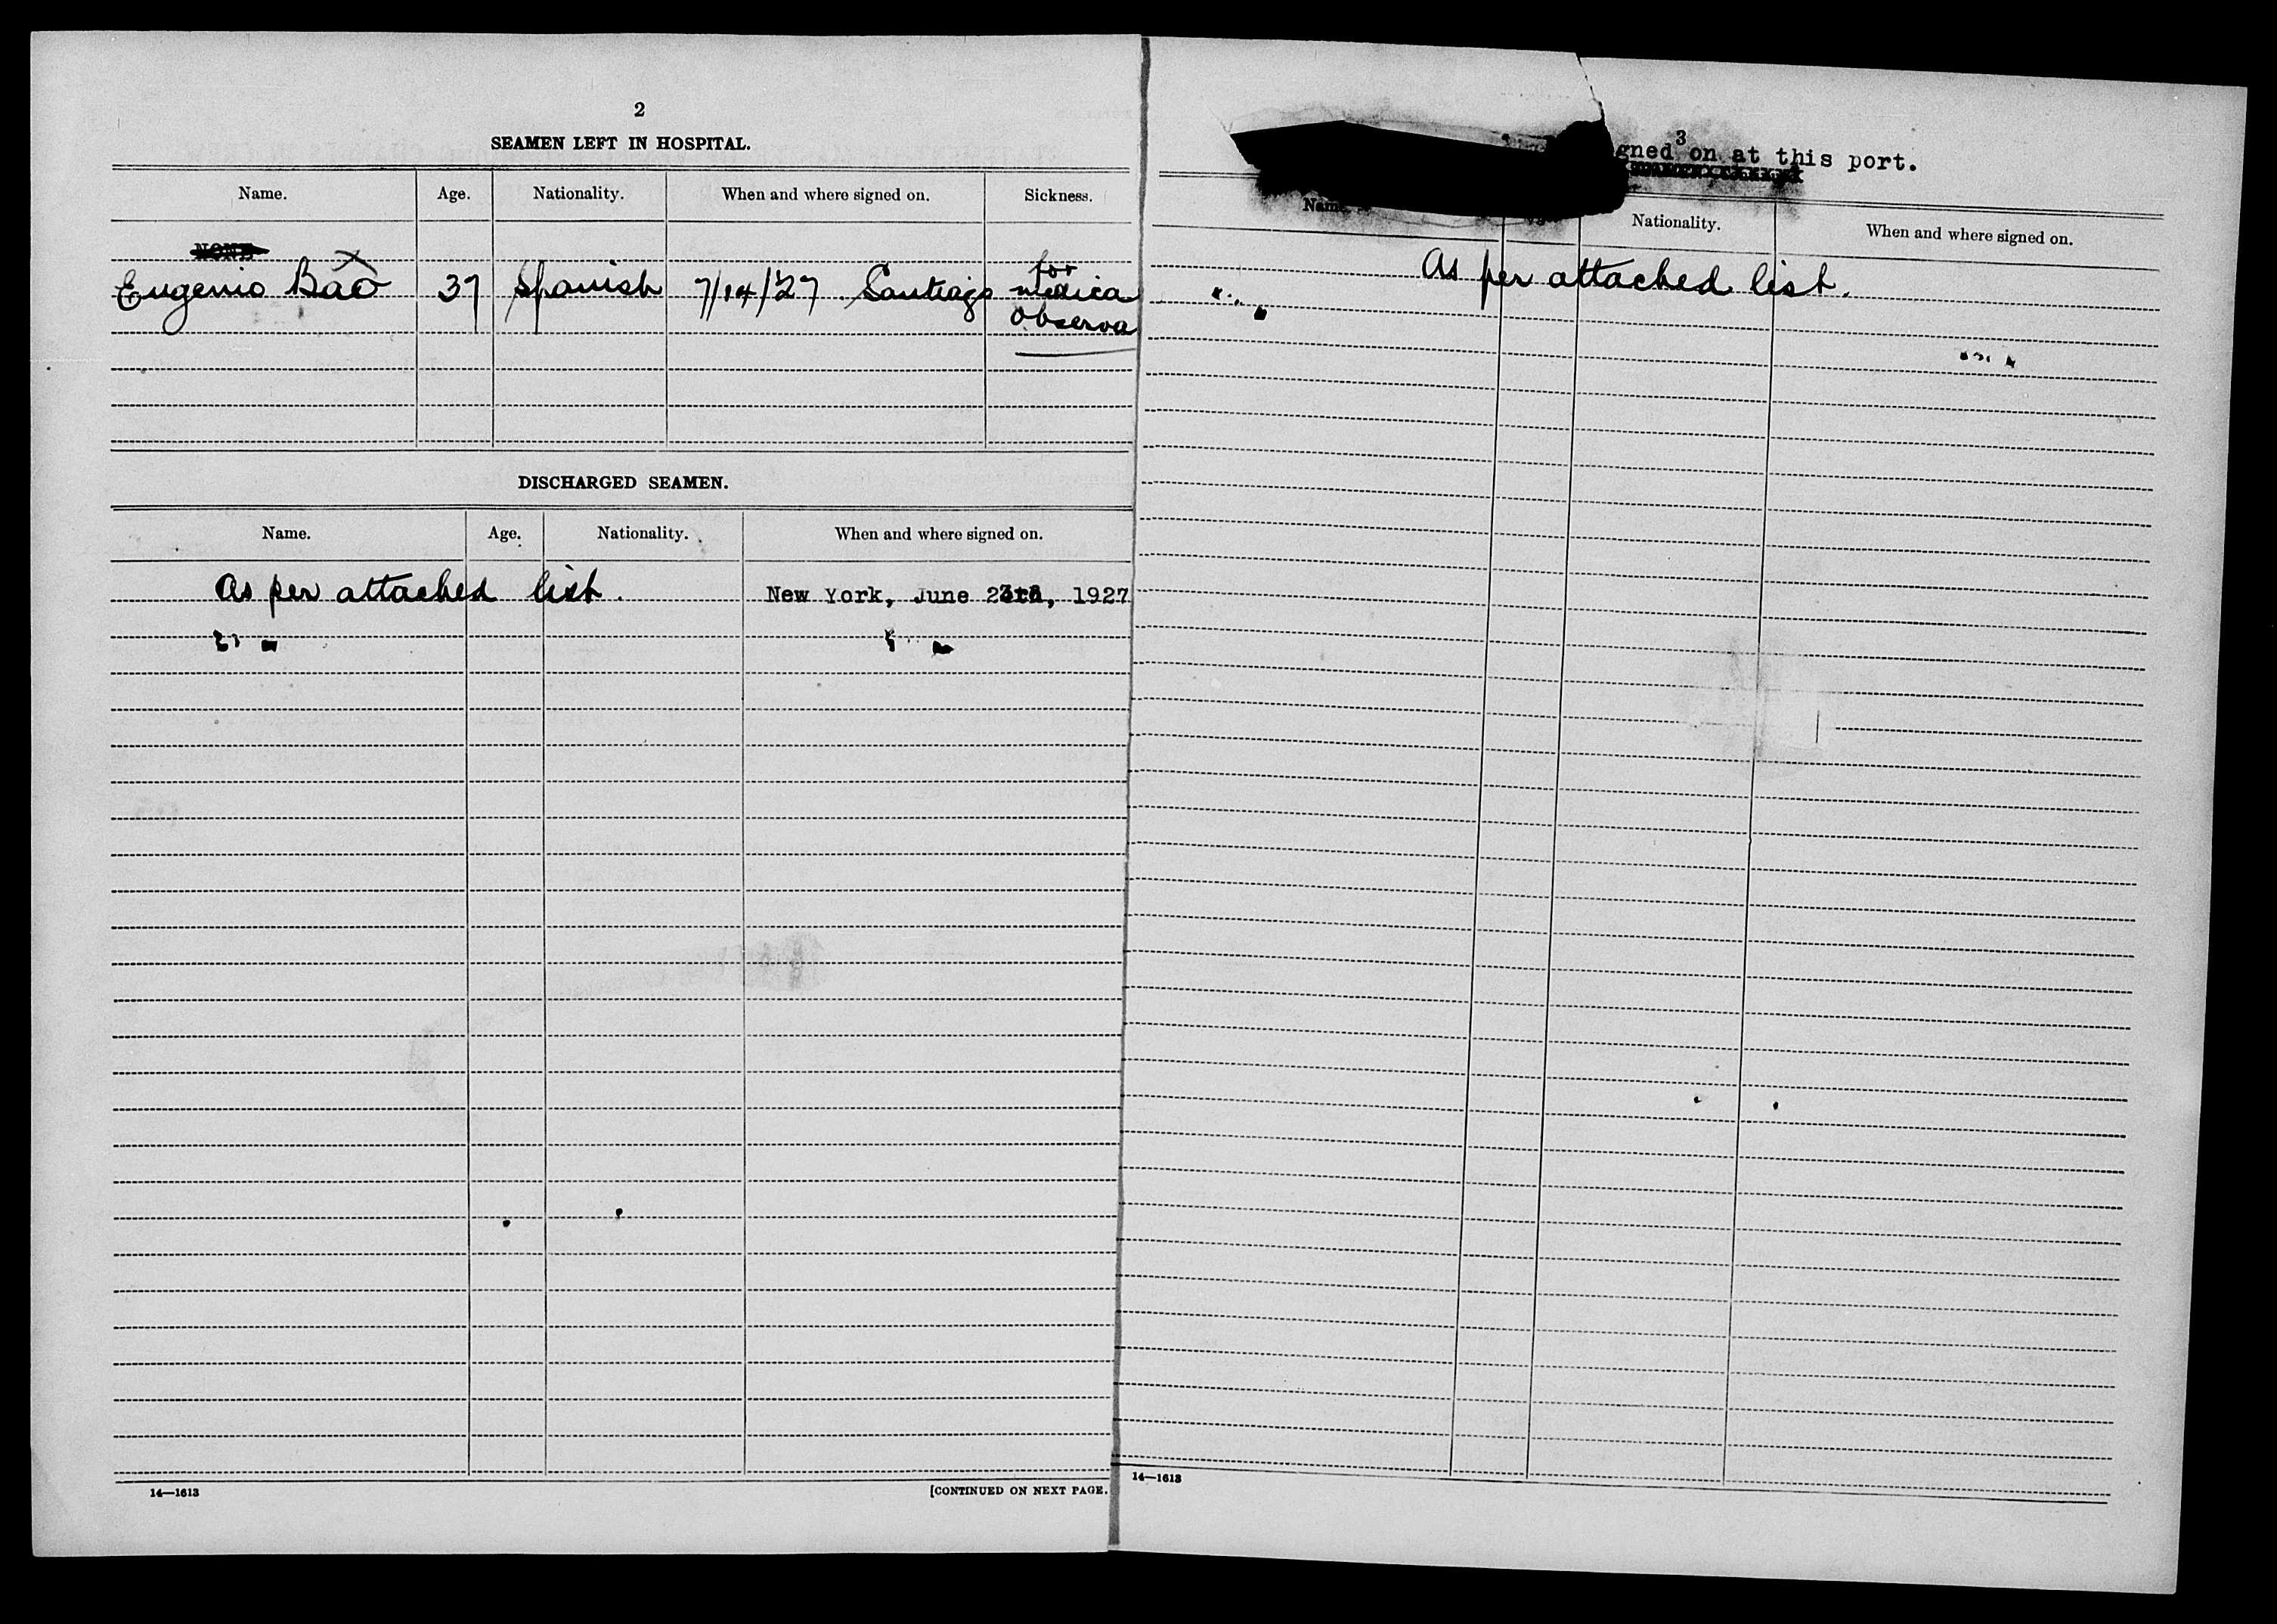 2
SEAMEN LEFT IN HOSPITAL.
Name. Age. Nationality. When and where signed on. Sickness.
NONE
Eugenio Bao 37 Spanish 7/14/27 Santiago for
medica
observa
DISCHARGED SEAMEN.
Name. Age. Nationality. When and where signed on.
As per attached list. New York, June 23rd, 1927
14—1613 [CONTINUED ON NEXT PAGE.
3
gned on at this port.
Nam Nationality. When and where signed on.
As per attached list.
14—1613